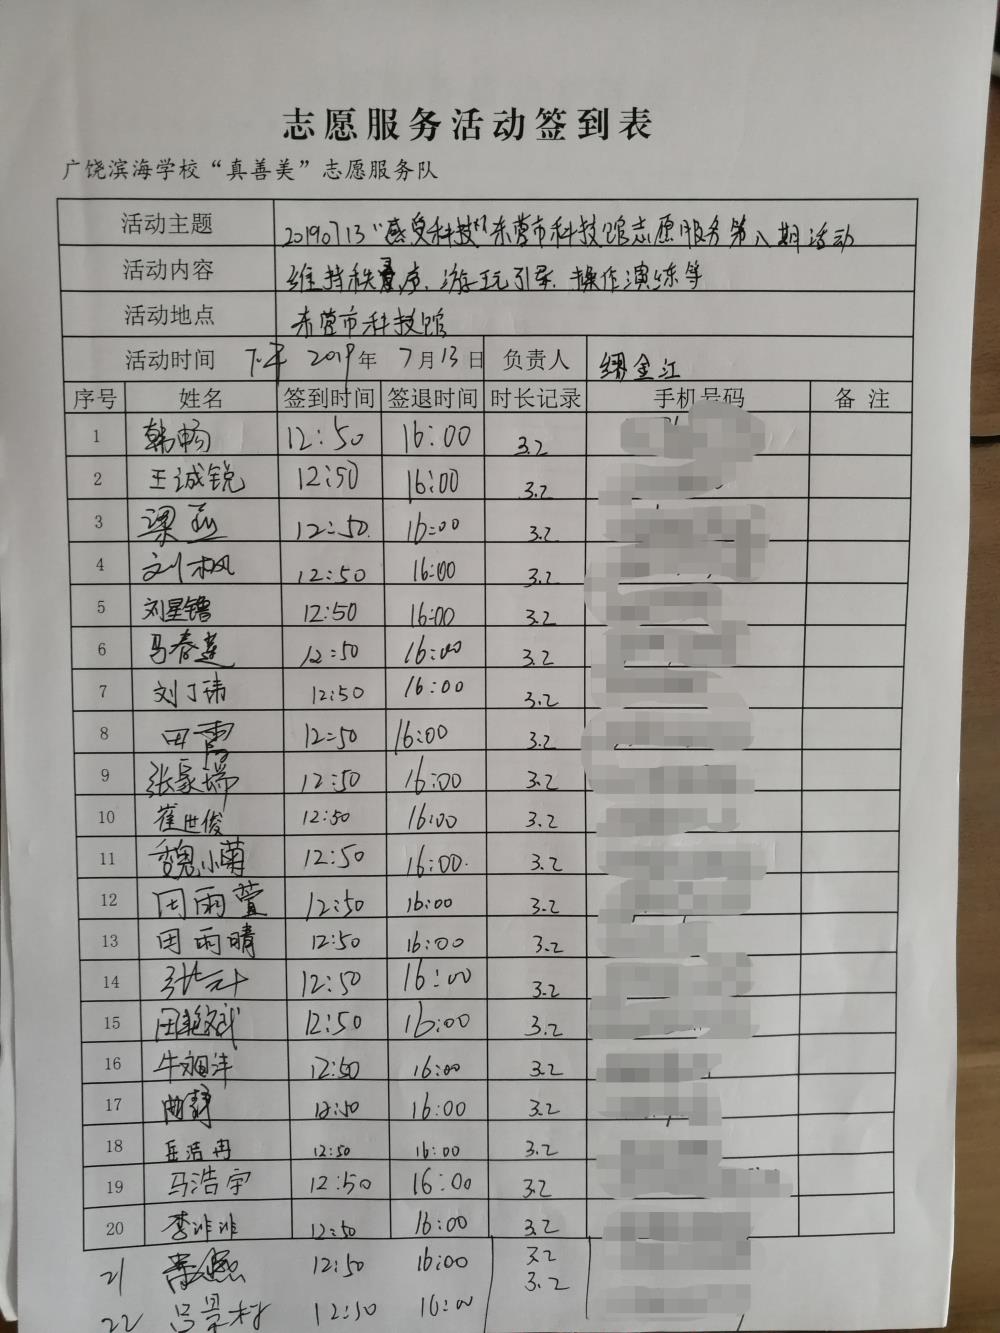 志愿服务活动签到表
广饶滨海学校“真善美”志愿服务队
活动主题 20190713“感受科技”东营市科技馆志愿服务第八期活动
活动内容 维持秩序、游玩引导、操作演练等
活动地点 东营市科技馆
活动时间 下午 2019年 7月13日 负责人 金江
序号 姓名 签到时间 签退时间 时长记录 手机号码 备注
1 韩畅 12:50 16:00 3.2
2 王诚锐 12:50 16:00 3.2
3 梁 12:50 16:00 3.2
4 刘枫 12:50 16:00 3.2
5 刘星镥 12:50 16:00 3.2
6 马春莲 12:50 16:00 3.2
7 刘丁玮 12:50 16:00 3.2
8 田霄 12:50 16:00 3.2
9 张豪瑞 12:50 16:00 3.2
10 崔世俊 12:50 16:00 3.2
11 魏小菊 12:50 16:00 3.2
12 田雨萱 12:50 16:00 3.2
13 田雨晴 12:50 16:00 3.2
14 12:50 16:00 3.2
15 田 斌 12:50 16:00 3.2
16 牛 洋 12:50 16:00 3.2
17 曲静 12:50 16:00 3.2
18 岳浩冉 12:50 16:00 3.2
19 马浩宇 12:50 16:00 3.2
20 李非非 12:50 16:00 3.2
21 12:50 16:00 3.2
22 吕景村 12:50 16:00 3.2